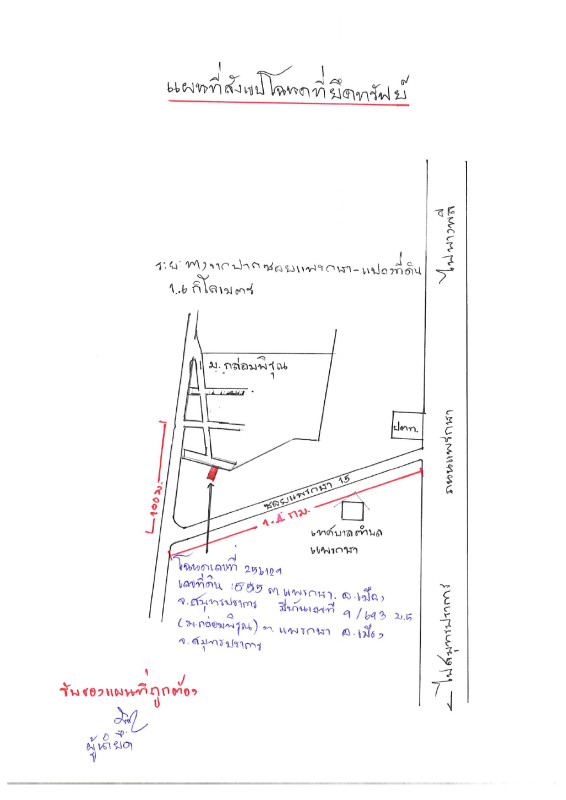 แผนที่สังเขปโฉนดที่ยึดทรัพย์
ไปบางพลี
ระยะทางจากปากซอยแพรกษา-แปลงที่ดิน
1.6 กิโลเมตร
ม.กล่อมพิรุณ
ปตท.
ถนนแพรกษา
100 ม.
ซอยแพรกษา 15
1.5 กม.
เทศบาลตำบล
แพรกษา
โฉนดเลขที่
เลขที่ดิน 1555 ต.แพรกษา อ.เมือง
จ.สมุทรปราการ มีบ้านเลขที่ 9/693 ม.5
(ม.กล่อมพิรุณ) ต.แพรกษา อ.เมือง
จ.สมุทรปราการ
ไปสมุทรปราการ
รับรองแผนที่ถูกต้อง
ผู้นำยึด